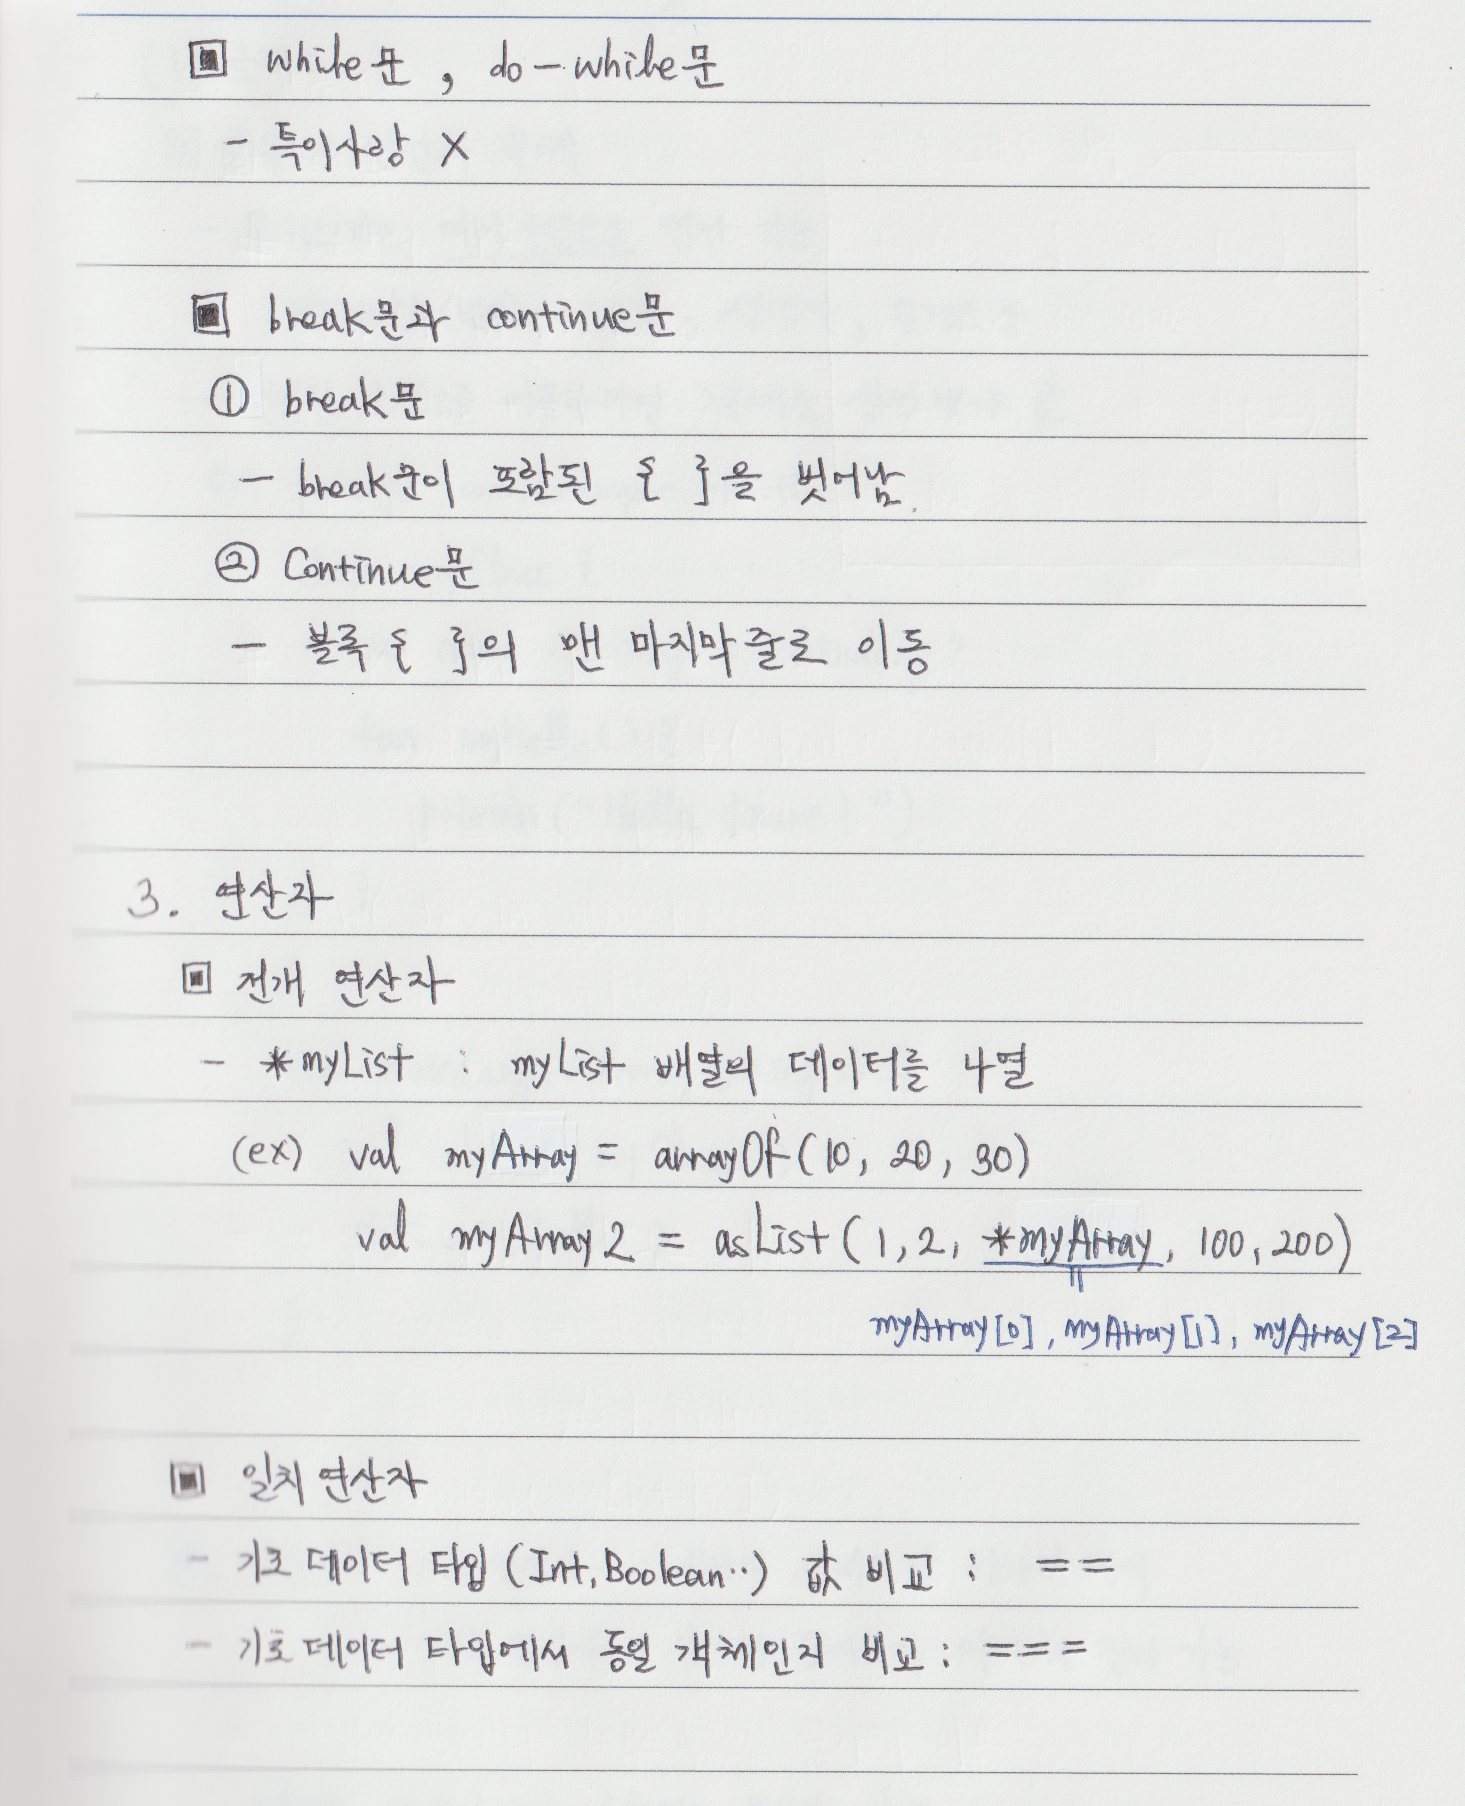 ▣ while문, do-while문
- 특이사항 X
▣ break문과 continue문
① break문
- break문이 포함된 { }을 벗어남.
② Continue문
- 블록 { }의 맨 마지막 줄로 이동
3. 연산자
▣ 전개 연산자
- *myList : myList 배열의 데이터를 나열
(ex) val myArray = arrayOf(10, 20, 30)
val myArray2 = asList(1, 2, *myArray, 100, 200)
myArray[0], myArray[1], myArray[2]
▣ 일치 연산자
- 기초 데이터 타입(Int, Boolean..) 값 비교 : ==
- 기초 데이터 타입에서 동일 객체인지 비교 : ===